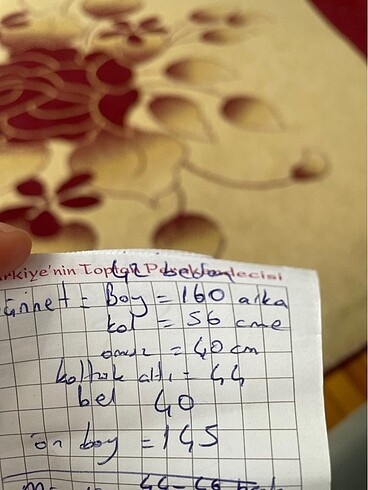 42 beden
rkiye'nin Toptan P
ünnet = Boy = 160 arka
kol = 56 cme
omuz = 40 cm
koltuk altı = 44
bel 40
ön boy = 145
44-46